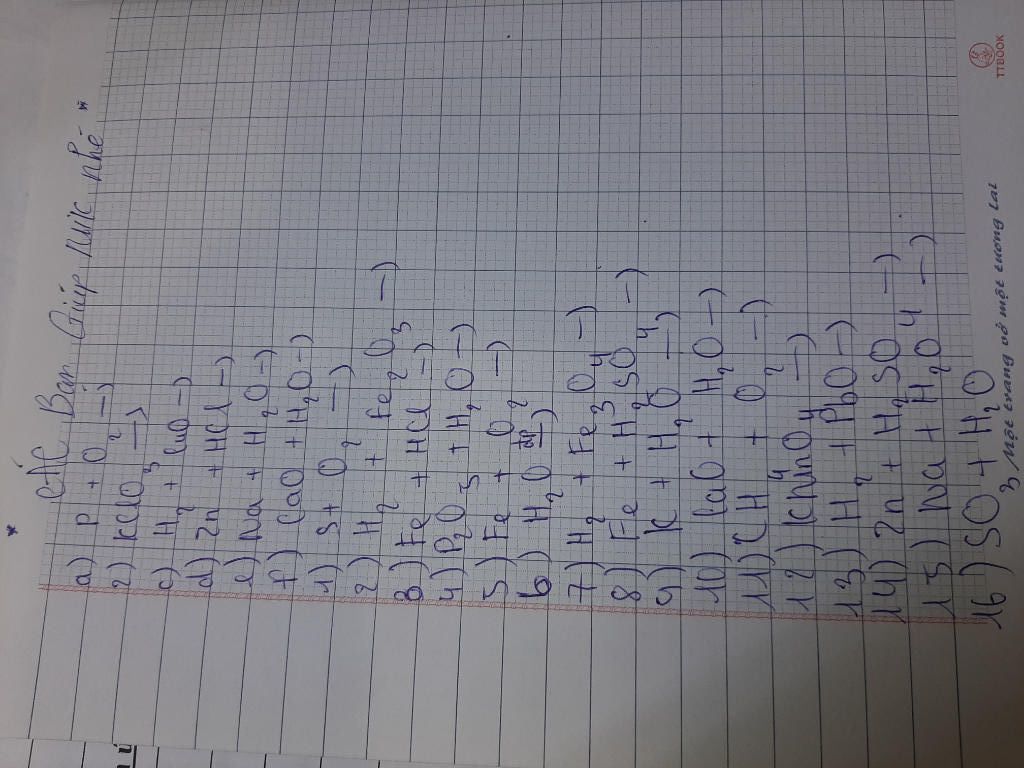 Các Bạn Giúp Mik Nhé
a) P + O2 →
2) KClO3 →
c) H2 + CuO →
d) Zn + HCl →
e) Na + H2O →
f) CaO + H2O →
1) S + O2 →
2) H2 + Fe2O3 →
3) Fe + HCl →
4) P2O3 + H2O →
5) Fe + O2 →
6) H2O →
7) H2 + Fe3O4 →
8) Fe + H2SO4 →
9) K + H2O →
10) CaO + H2O →
11) CH4 + O2 →
12) KMnO4 →
13) H2 + PbO →
14) Zn + H2SO4 →
15) Na + H2O4 →
16) SO3 + H2O
Một trang vở một tương lai
TTBOOK